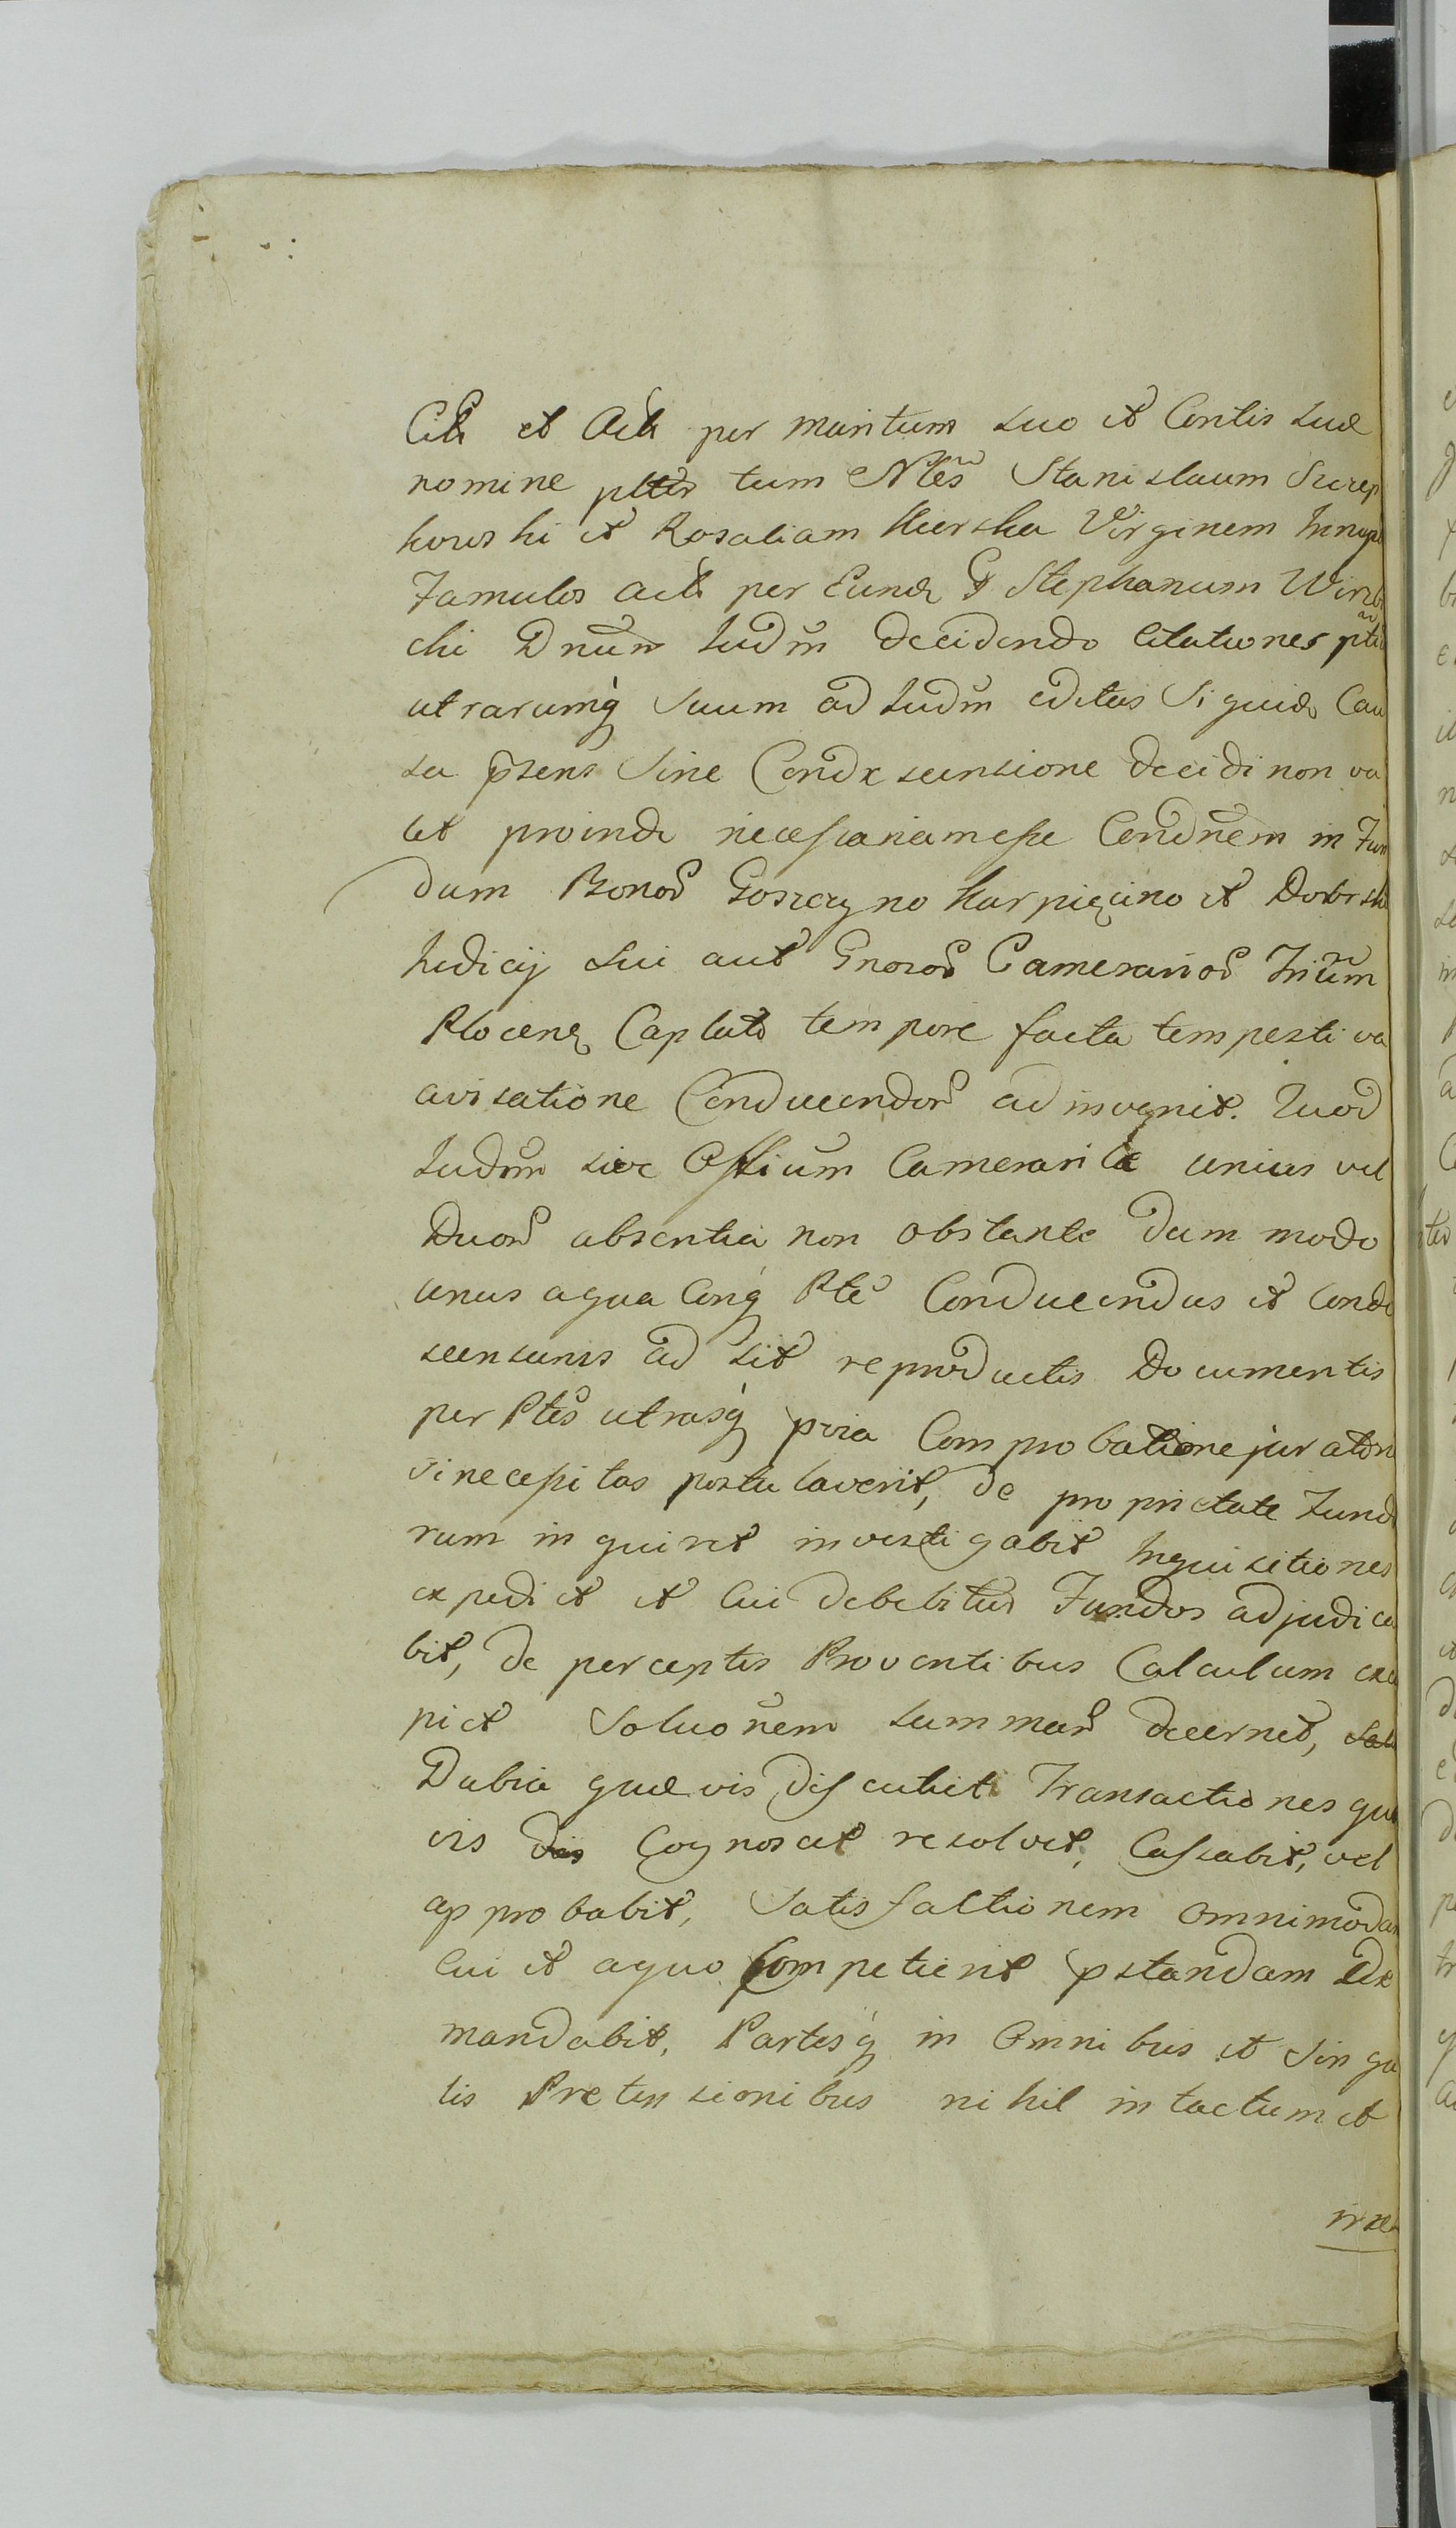 Citt et Actt per maritum suo et Contis suæ
nomine pltter tum Nlẽs Stanislaum Szczep
kowski et Rosaliam Kierska Virginem Innupt
Famulos actt per Eund G Stephanum Wierzbi
cki Dnũm Judm̃ decidendo Citationes ptiũ
utrarumq́ suum ad Judm̃ editas Siquid Cau
sa p̃sens sine Condescensione decidi non va
let proinde necessariam esse Condnẽm in Fun
dum Bonoꝝ Goszczyno Karpięcino et Dobrsk
Judicij sui aut Gnosoꝝ Camerarioꝝ Trium̃
Plocen Captato tempore facta tempestiva
avisatione Conducendoꝝ adinvenit. Quod
Judm̃ sive Offium̃ Camerarile unius vel
Duoꝝ absentia non obstante dum modo
unus aqua Cunq́ Pte Conducendus et conde
scensurus adsit reproductis Documentis
per Ptes utrasq́ pvia Comprobatione jurator
si necessitas postulaverit, de proprietate Fundo
rum inquiret investigabit Inquisitiones
expediet et Cui debebitur Fundos adjudica
bit, de perceptis Proventibus Calculum exci
piet Soluonẽm summaꝝ decernet,
Dubia quævis discutiet Transactiones quæ
vis Cognoscet resolvet, Cassabit, vel
approbabit, Satisfactionem omnimodam
Cui et aquo Competierit pstandam De
mandabit, Partesq́ in Omnibus et Singu
lis Pretensionibus nihil intactum et
irre